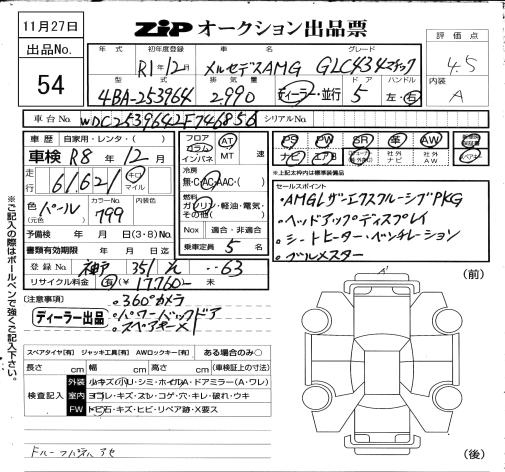 11月27日
ZiP オークション出品票
出品No.
54
年式 初年度登録 車名 グレード
R1年12月 メルセデスAMG GLC43 4マチック
型式 排気量 ドア ハンドル
4BA-253964 2,990 ディーラー・並行 5 左・右
評価点
4.5
内装
A
車台No. WDC2539642F746856 シリアルNo.
車歴 自家用・レンタ・( )
車検 R8年12月
走行 61621 キロ マイル
色 (元色) パール カラーNo. 799 内装色
予備検 年 月 日(3・8)No.
書類有効期限 年 月 日迄
登録No. 神戸 351 ・・63
リサイクル料金 有(¥17,760- 未
フロア コラム インパネ
AT MT 速
冷房 無・C・AC・AAC・( )
燃料 ガソリン・軽油・電気・その他( )
Nox 適合・非適合
乗車定員 5名
PS PW SR 革 AW
ナビ エアB 社外ナビ 社外AW
※上記太枠内は標準装備品
セールスポイント
・AMGレザーエクスクルーシブPKG
・ヘッドアップディスプレイ
・シートヒーター・ベンチレーション
・ブルメスター
(注意事項)
ディーラー出品
・360°カメラ
・パワーバックドア
・スペアキー×1
スペアタイヤ[有] ジャッキ工具[有] AWロックキー[有] ある場合のみ○
長さ cm 幅 cm 高さ cm (車検証上の寸法)
検査記入
外装 小キズ(小)・シミ・ホイルA・ドアミラー(A・ワレ)
室内 ヨゴレ・キズ・スレ・コゲ・穴・キレ・破れ・ウキ
FW トビ石・キズ・ヒビ・リペア跡・X要ス
※ご記入の際はボールペンで強くご記入下さい。
A'
(前)
(後)